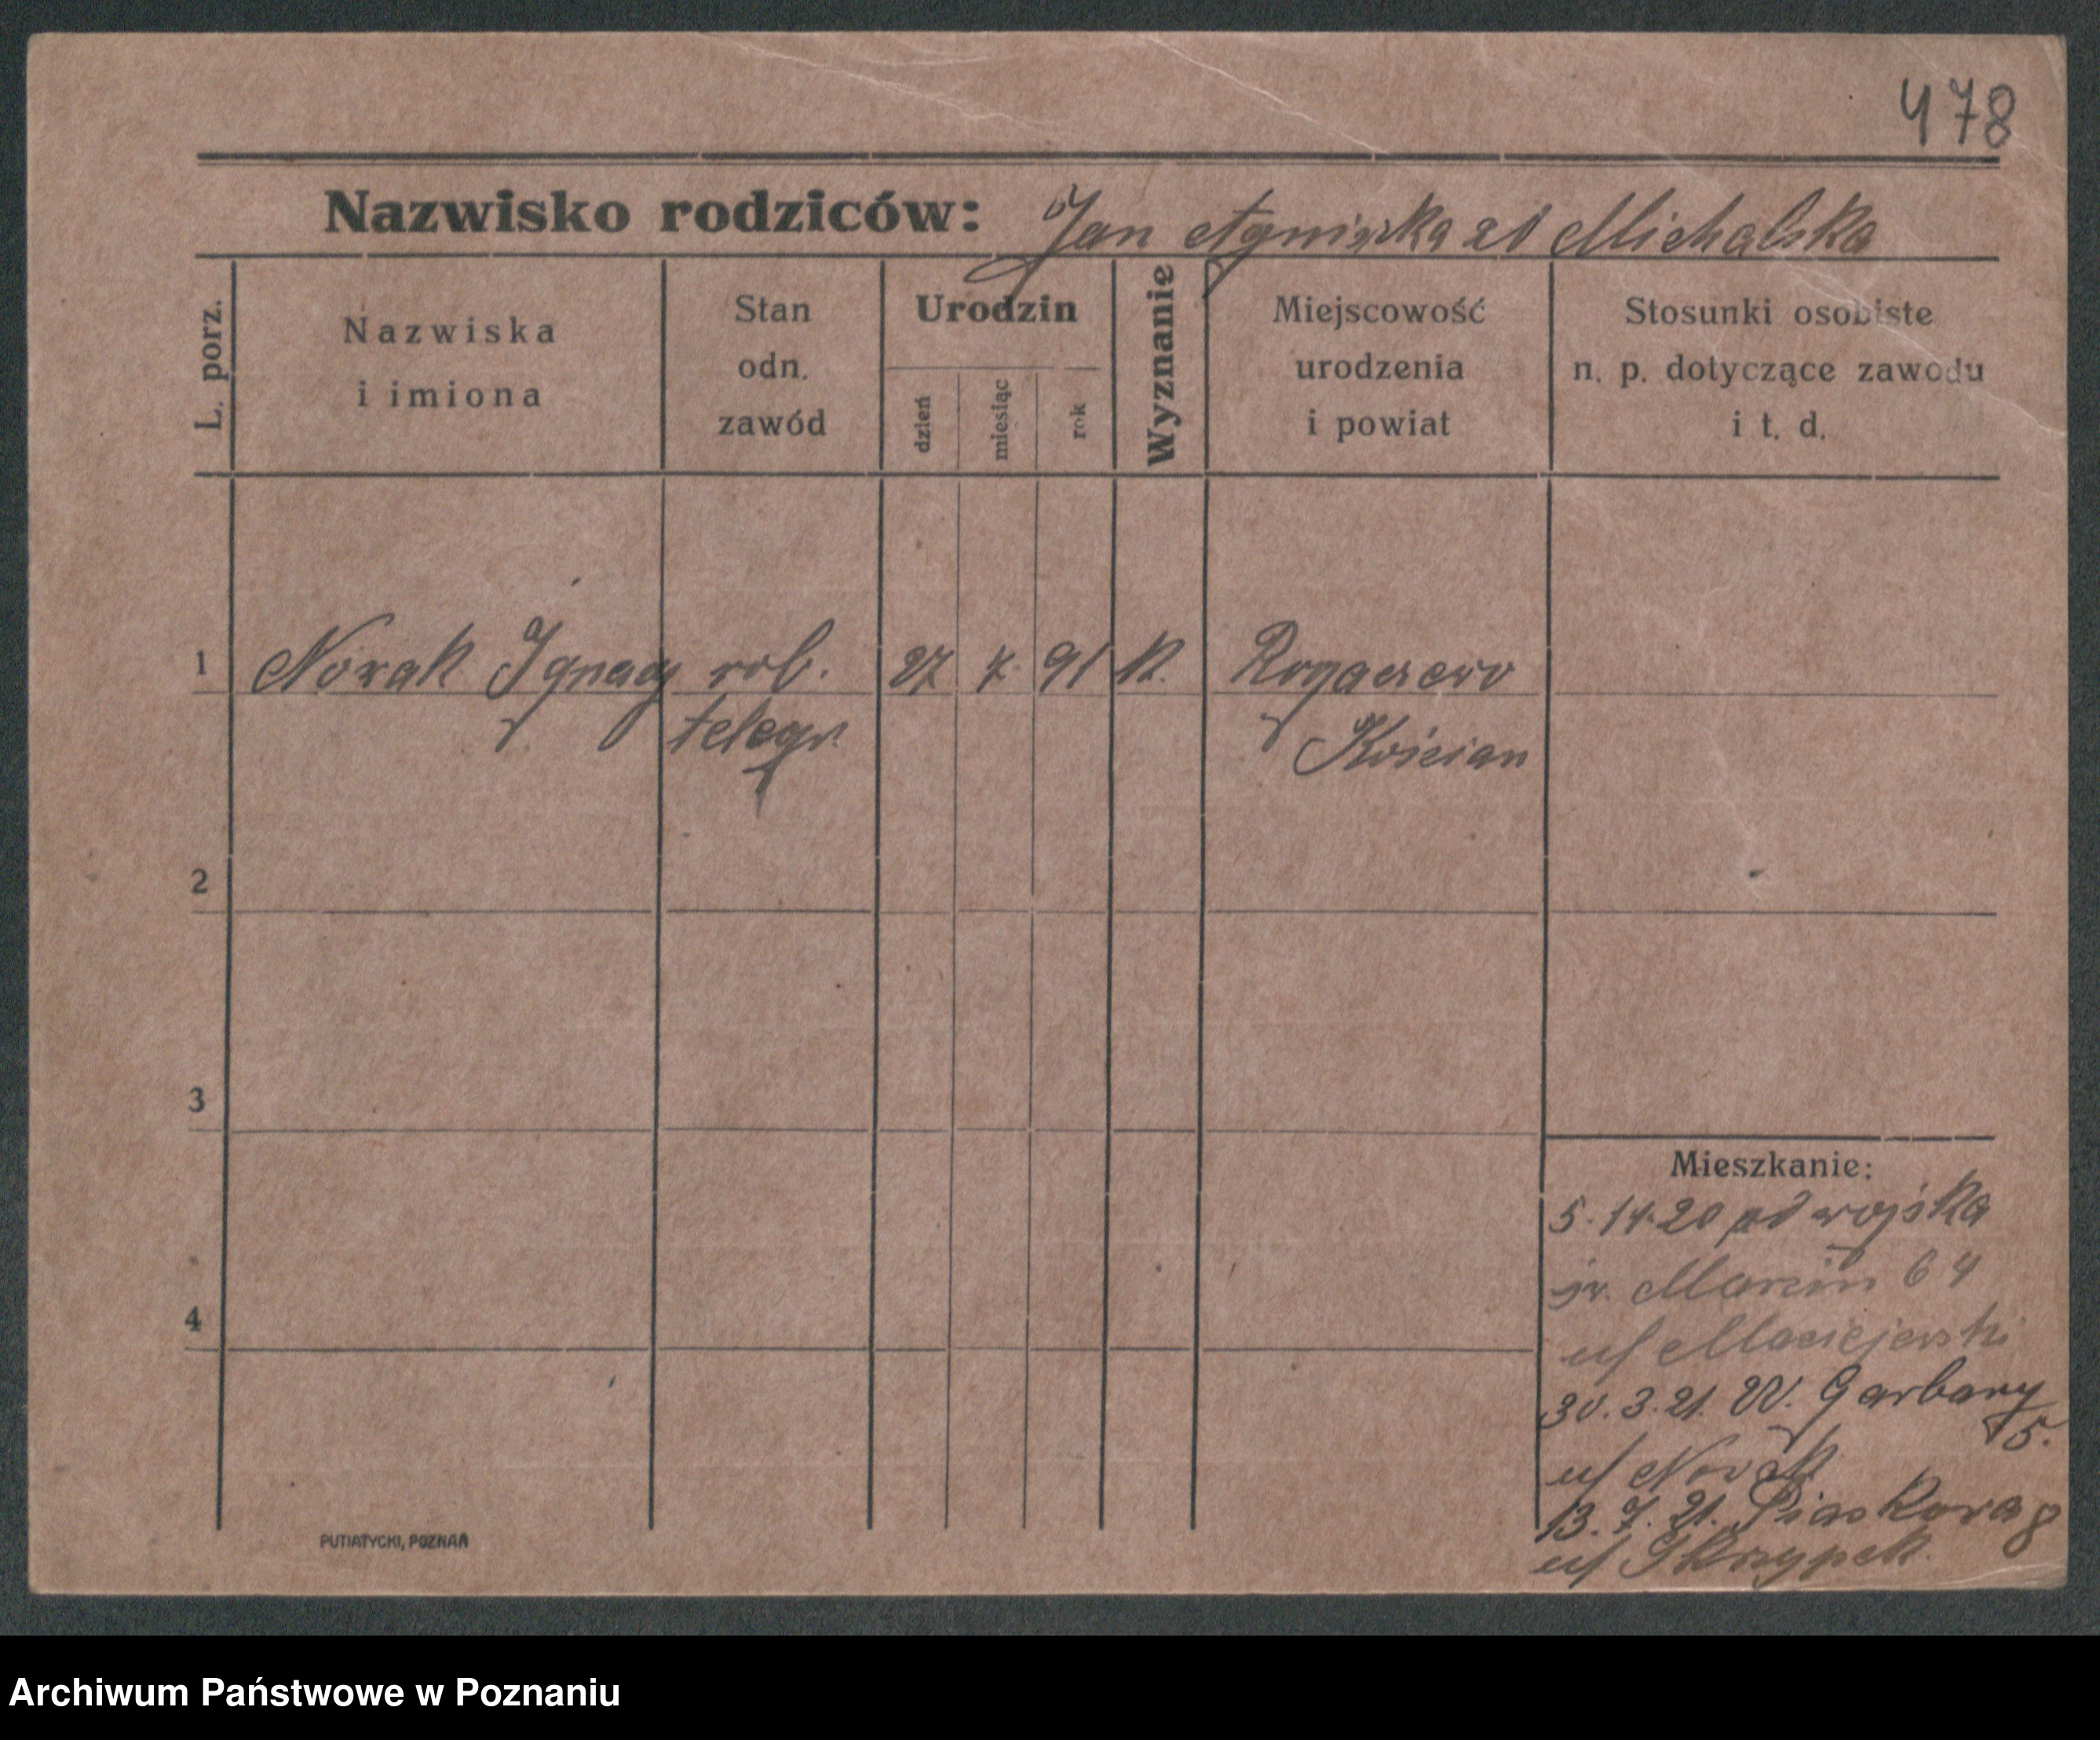 478
Nazwisko rodziców: Jan Agniszka zd Michalska
L. porz.
Nazwiska i imiona
Stan odn. zawód
Urodzin
dzień
miesiąc
rok
Wyznanie
Miejscowość urodzenia i powiat
Stosunki osobiste n. p. dotyczące zawodu i t. d.
1 Nowak Ignacy rob. 27 7. 91 k. Rogaczewo
telegr. Kościan
2
3
4
Mieszkanie:
5. 14.20 od wojska
św. Marcin 64
u/ Maciejewski
30.3.21. W. Garbary
15.
u/ Nowak
13.7.21. Piaskowa 8
u/ Skrzypek.
PUTIATYCKI, POZNAŃ
Archiwum Państwowe w Poznaniu